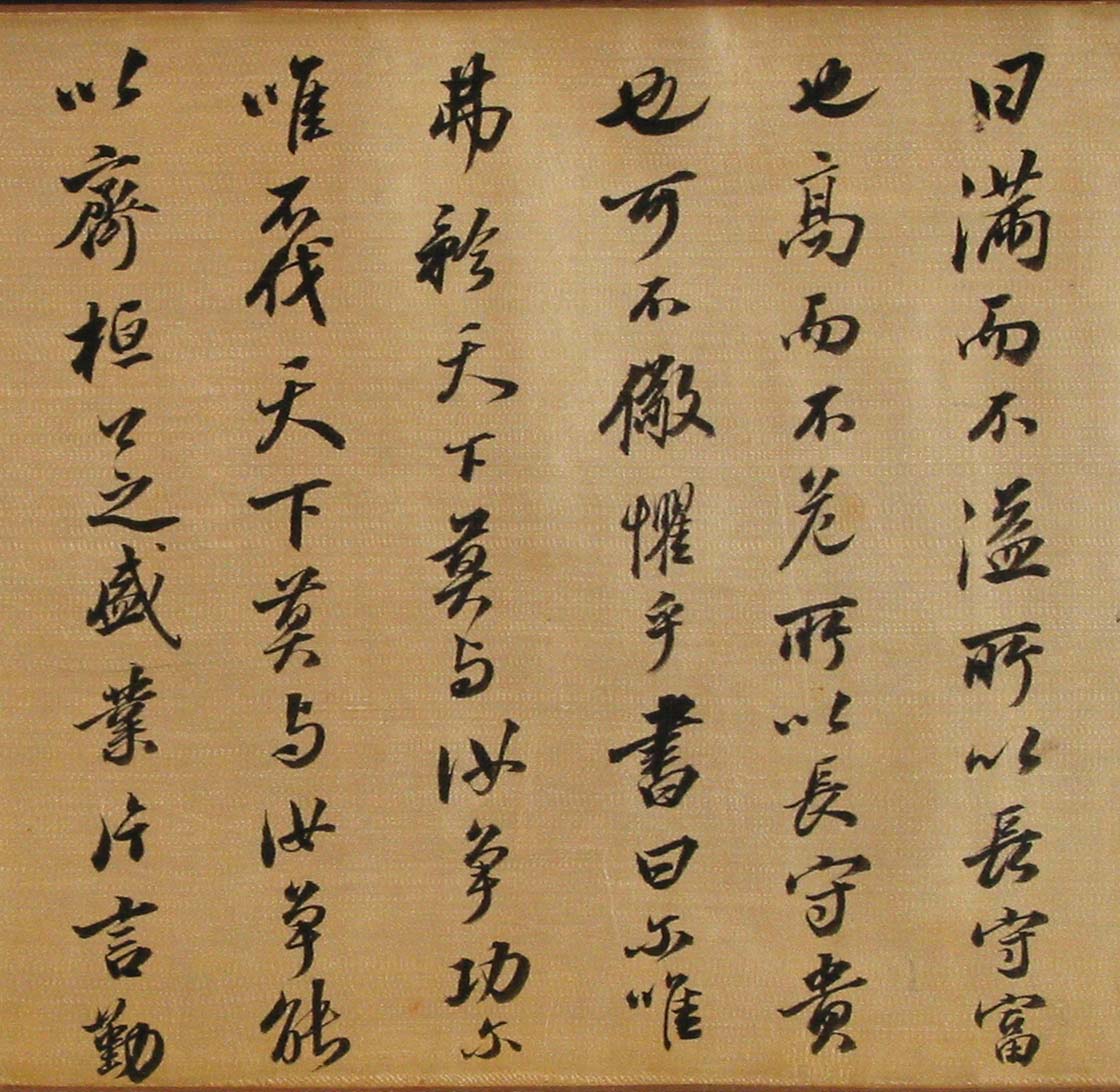 曰满而不溢所以長守富
也高而不危所以長守貴
也可不儆懼乎書曰尔唯
弗矜天下莫与汝争功尔
唯不伐天下莫与汝争能
以齊桓公之盛業片言勤